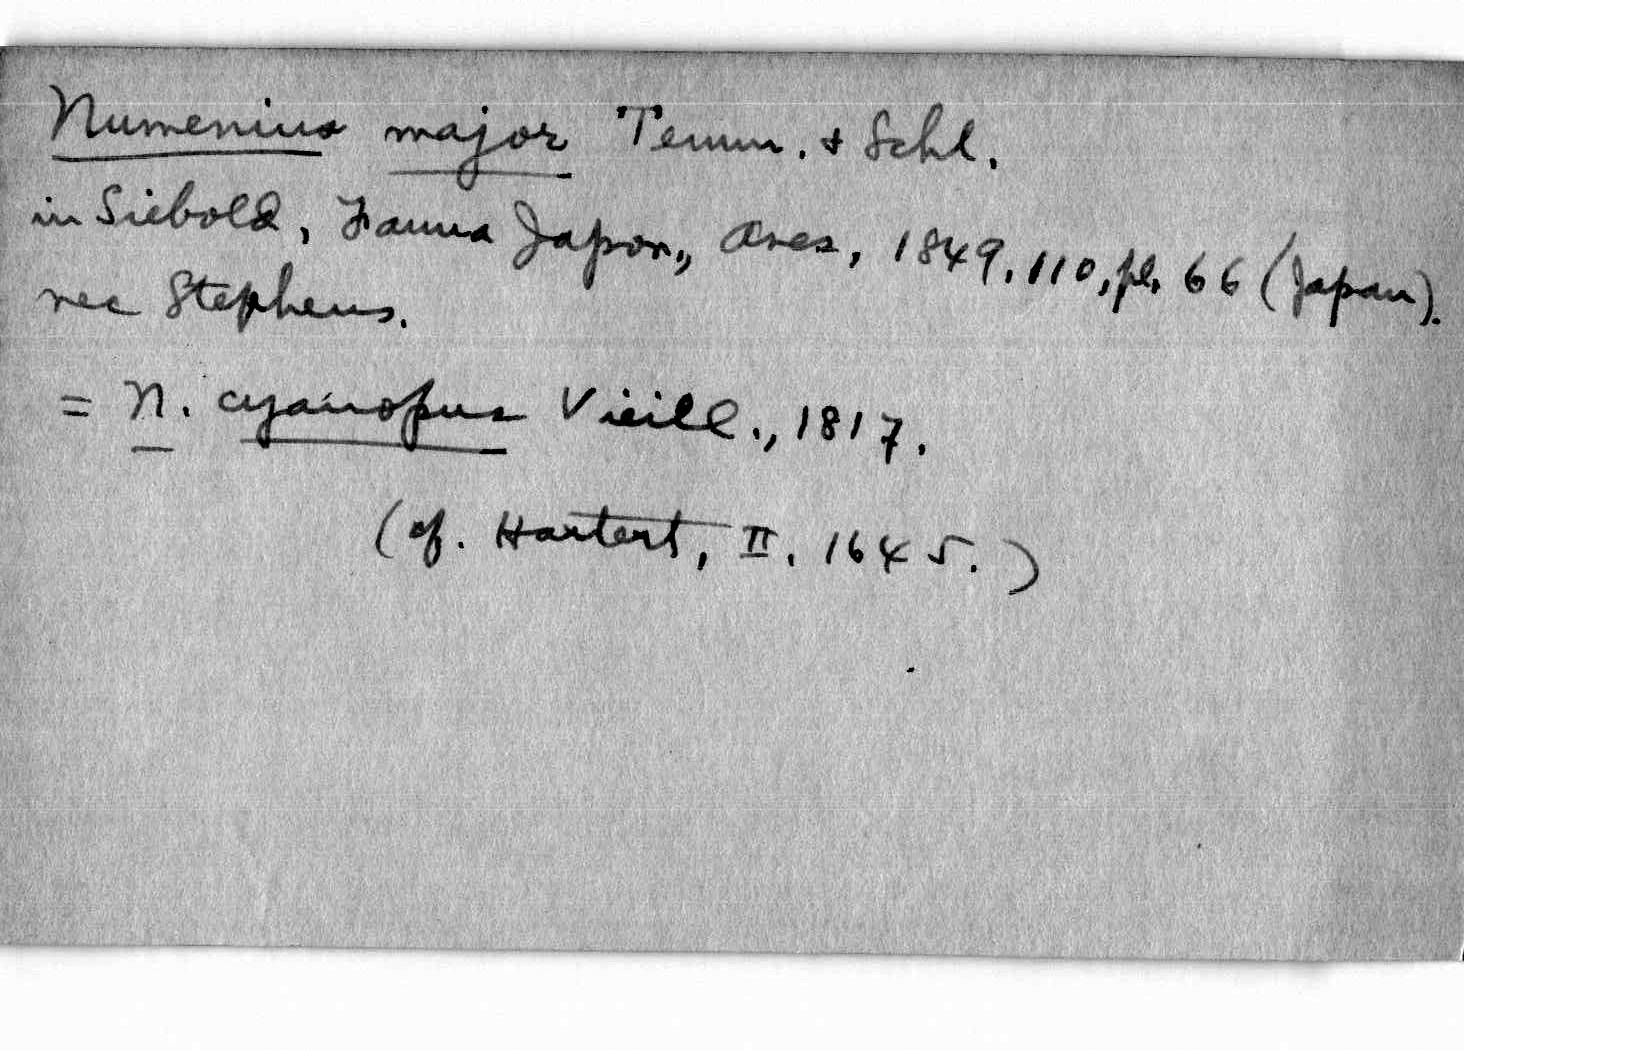 Numenius major Temm. & Schl.
in Siebold, Fauna Japon., Aves, 1849, 110, pl. 66 (Japan).
nec Stephens.
= N. cyanopus Vieill., 1817.
(cf. Hartert, II, 1645.)